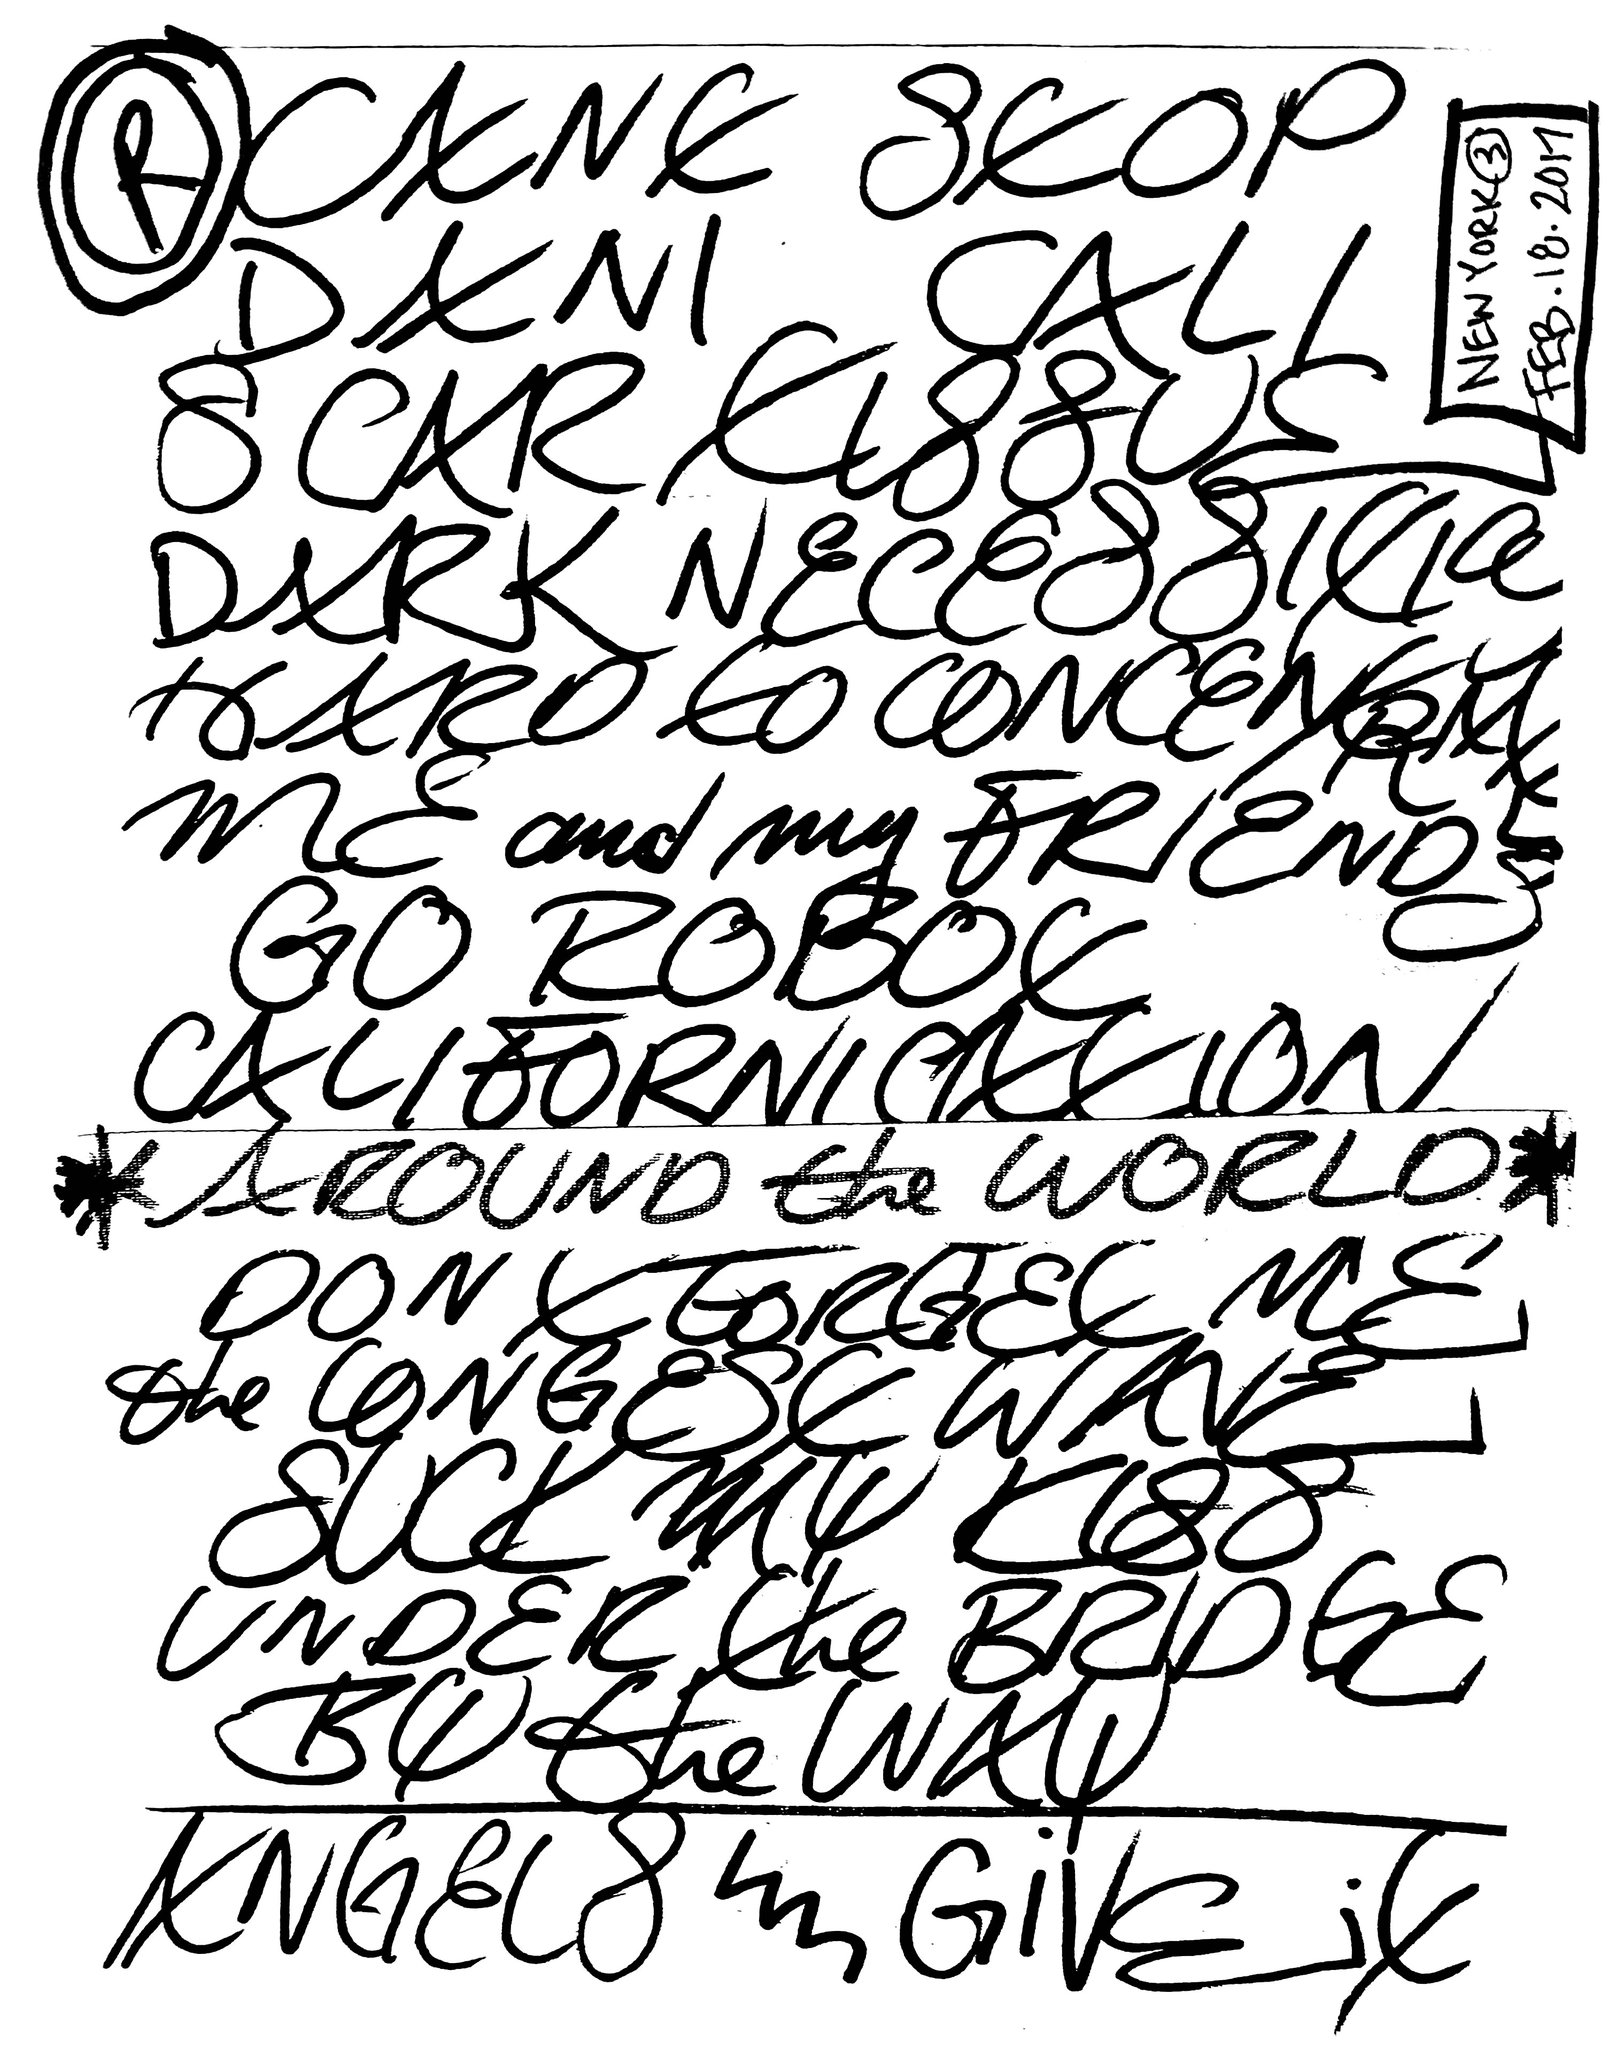 R
CANT STOP
DANI CALL
SCAR TISSUE
DARK NECESSITIE
HARD to CONCENTRATE
ME and my FRIENDS
GO ROBOT
CALIFORNICATION
* AROUND the WORLD *
DONT FORGET ME
the LONGEST WAVE
SUCK MY KISS
UNDER the BRIDGE
BY the WAY
ANGELS GIVE it
NEW YORK 3
FEB. 18. 2017